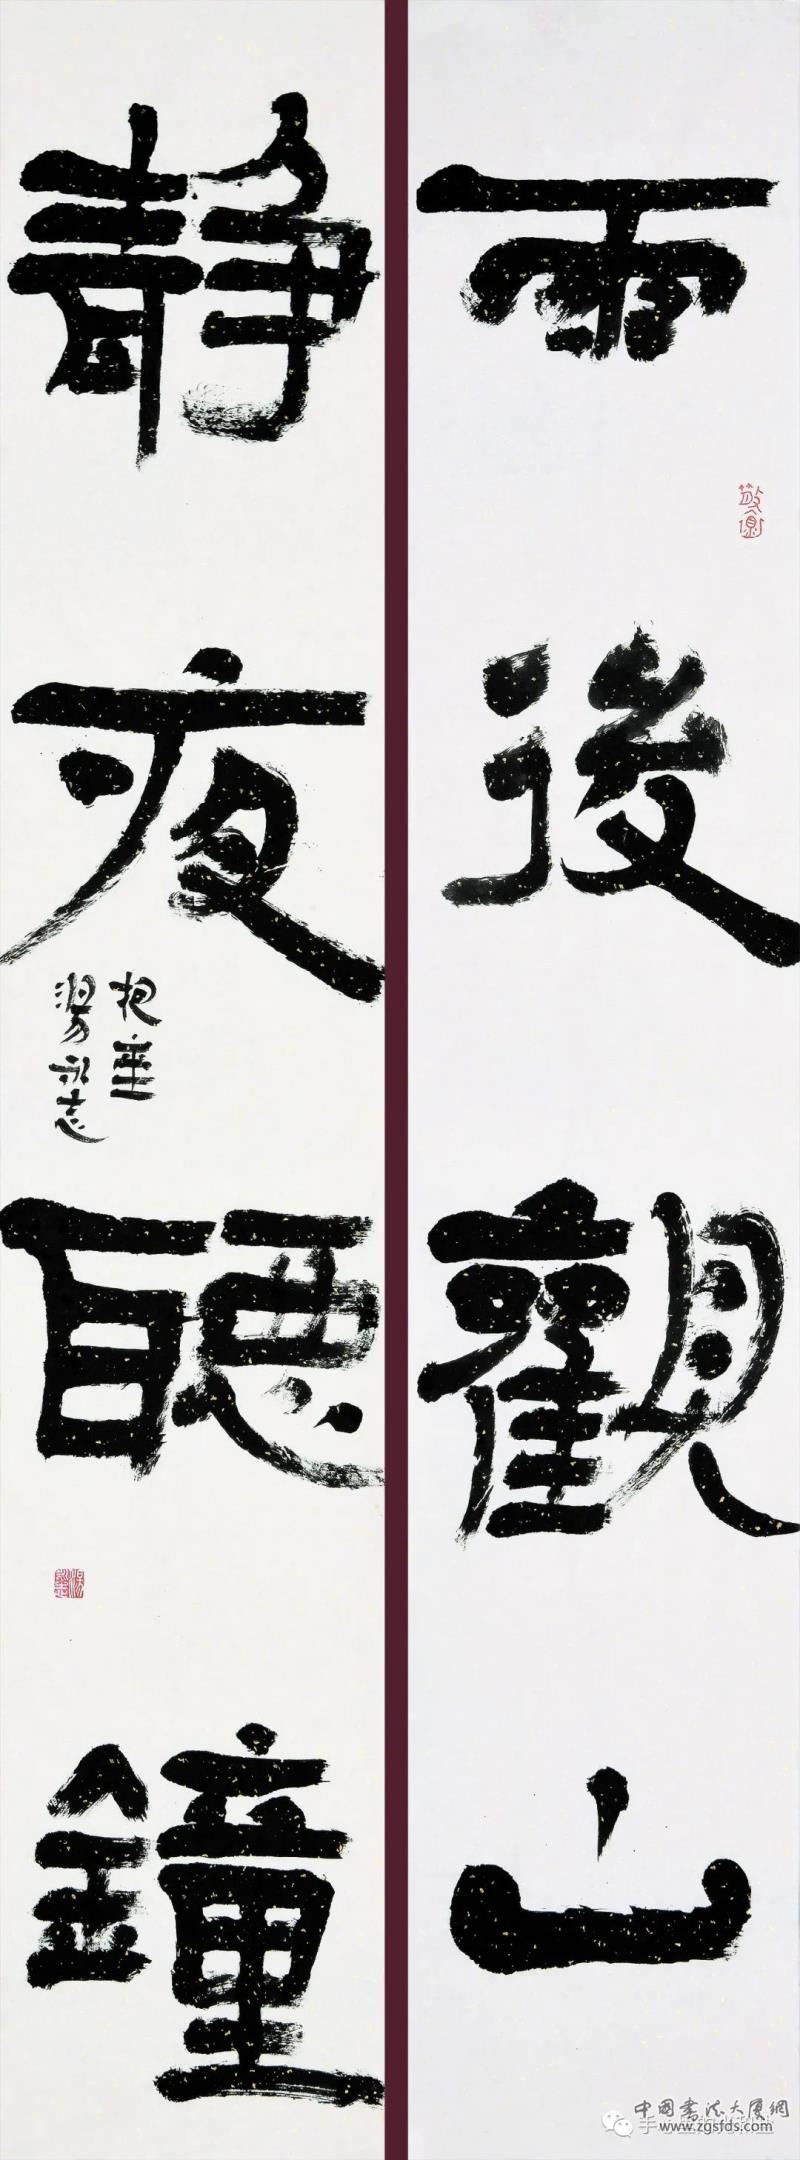 雨後觀山
靜夜聽鐘
抱塵
楊永志
中国書法大厦網
www.zgsfds.com